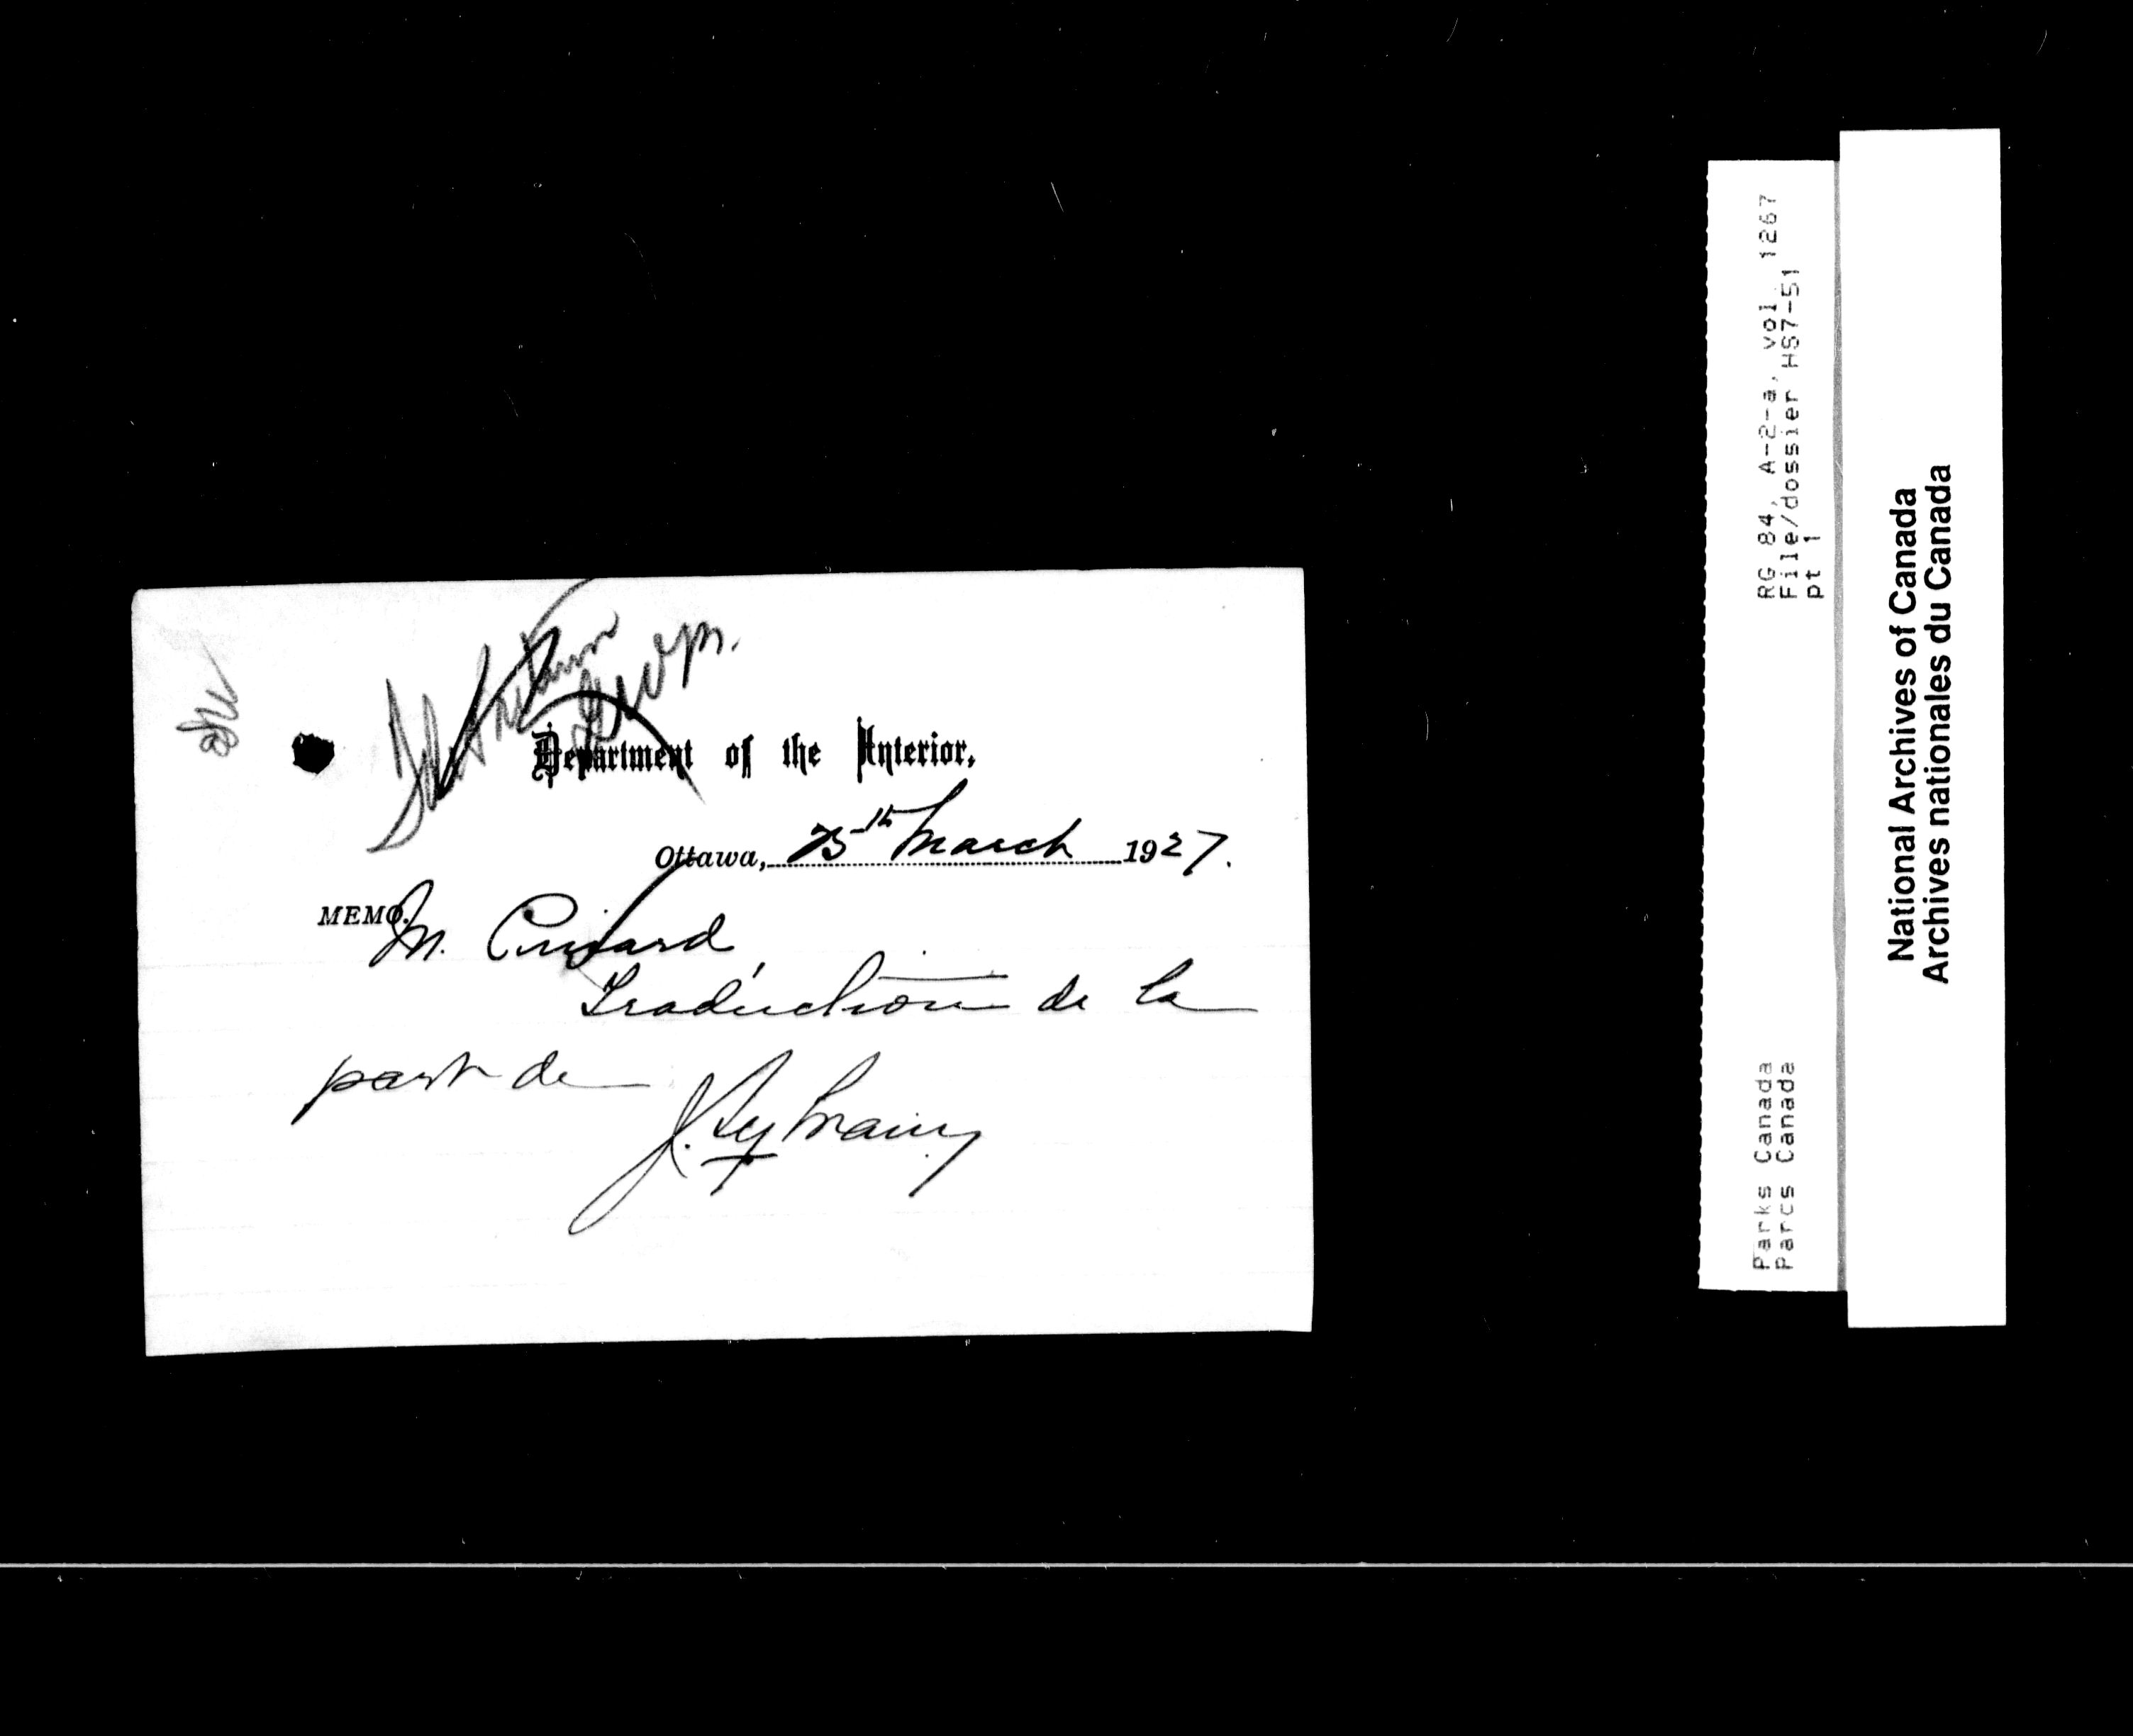 Department of the Interior.
Ottawa, 15th March 1927.
MEMO.
M. Pinard
Traduction de la
part de
RG 84, A-2-a, vol. 1267
File/dossier HS7-51
pt 1
Parks Canada
Parcs Canada
National Archives of Canada
Archives nationales du Canada